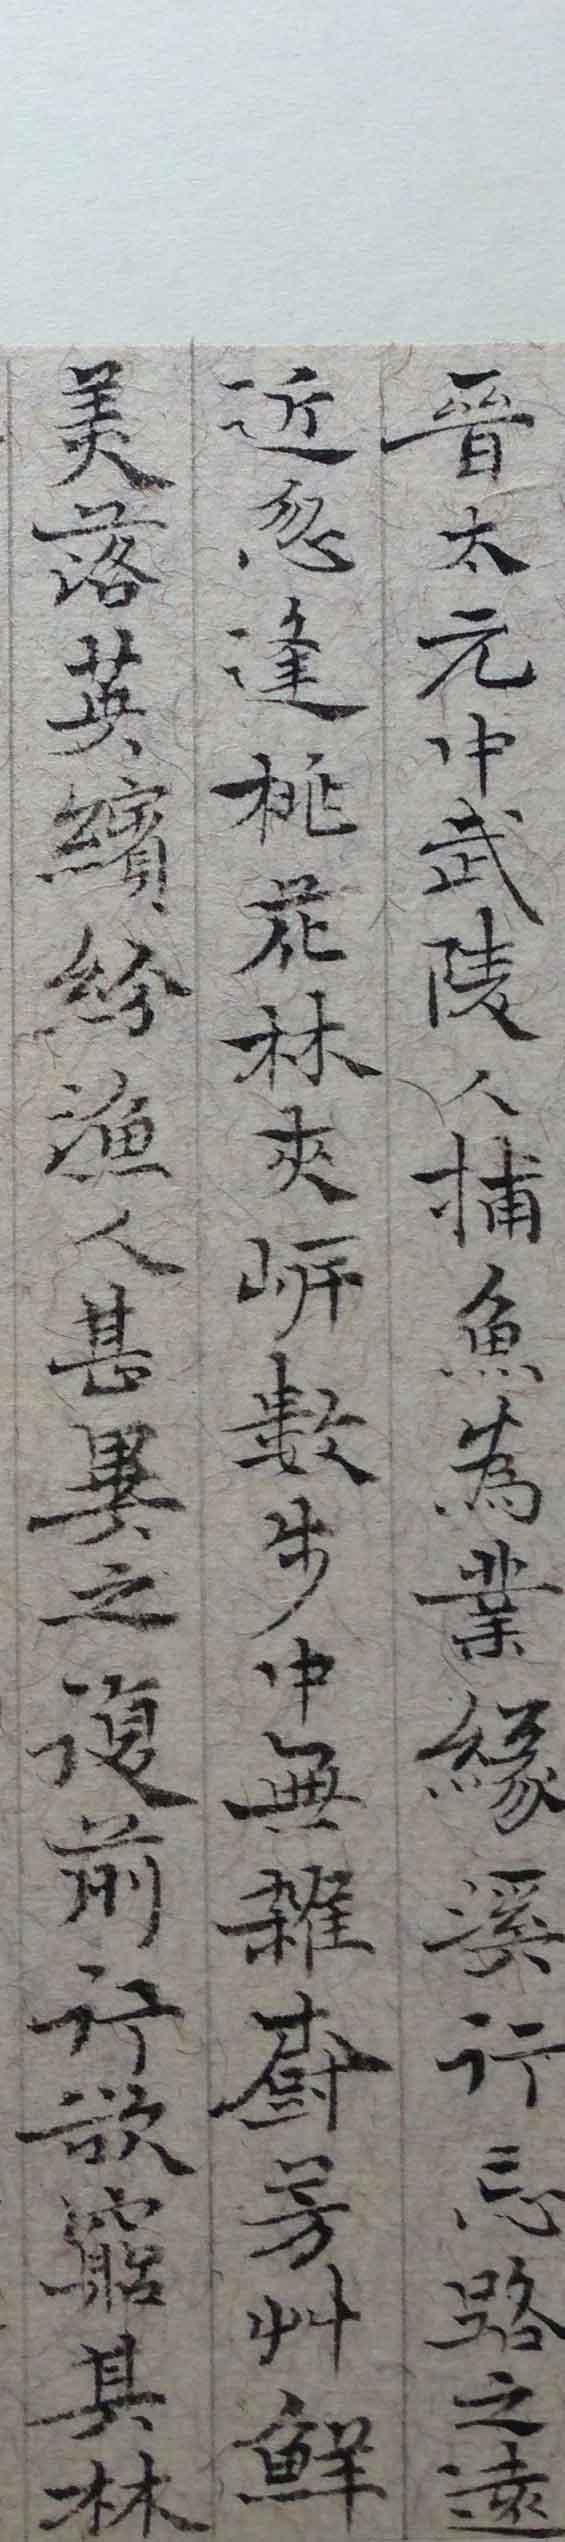 晉太元中武陵人捕魚為業緣溪行忘路之遠
近忽逢桃花林夾岍數步中無雜樹芳艸鮮
美落英繽紛漁人甚異之復前行欲窮其林